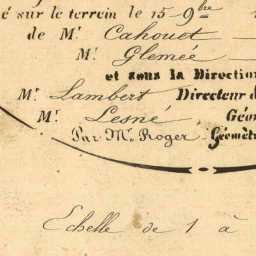 é sur le terrein le 15 9bre
de Mr. Cahouet
Mr. Glemée
et sous la Direction
Mr. Lambert Directeur d
Mr. Lesné Géo
Par Mr. Roger Géomètr
Echelle de 1 à